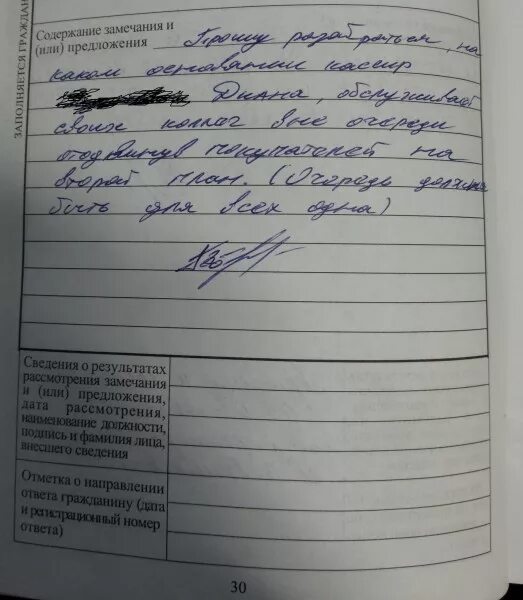 ЗАПОЛНЯЕТСЯ ГРАЖДАН
Содержание замечания и
(или) предложения Прошу разобраться, на
каком основании кассир
Диана, обслуживает
своих коллег вне очереди
отодвинув покупателей на
второй план. (Очередь должна
быть для всех одна)
Сведения о результатах
рассмотрения замечания
и (или) предложения,
дата рассмотрения,
наименование должности,
подпись и фамилия лица,
внесшего сведения
Отметка о направлении
ответа гражданину (дата
и регистрационный номер
ответа)
30